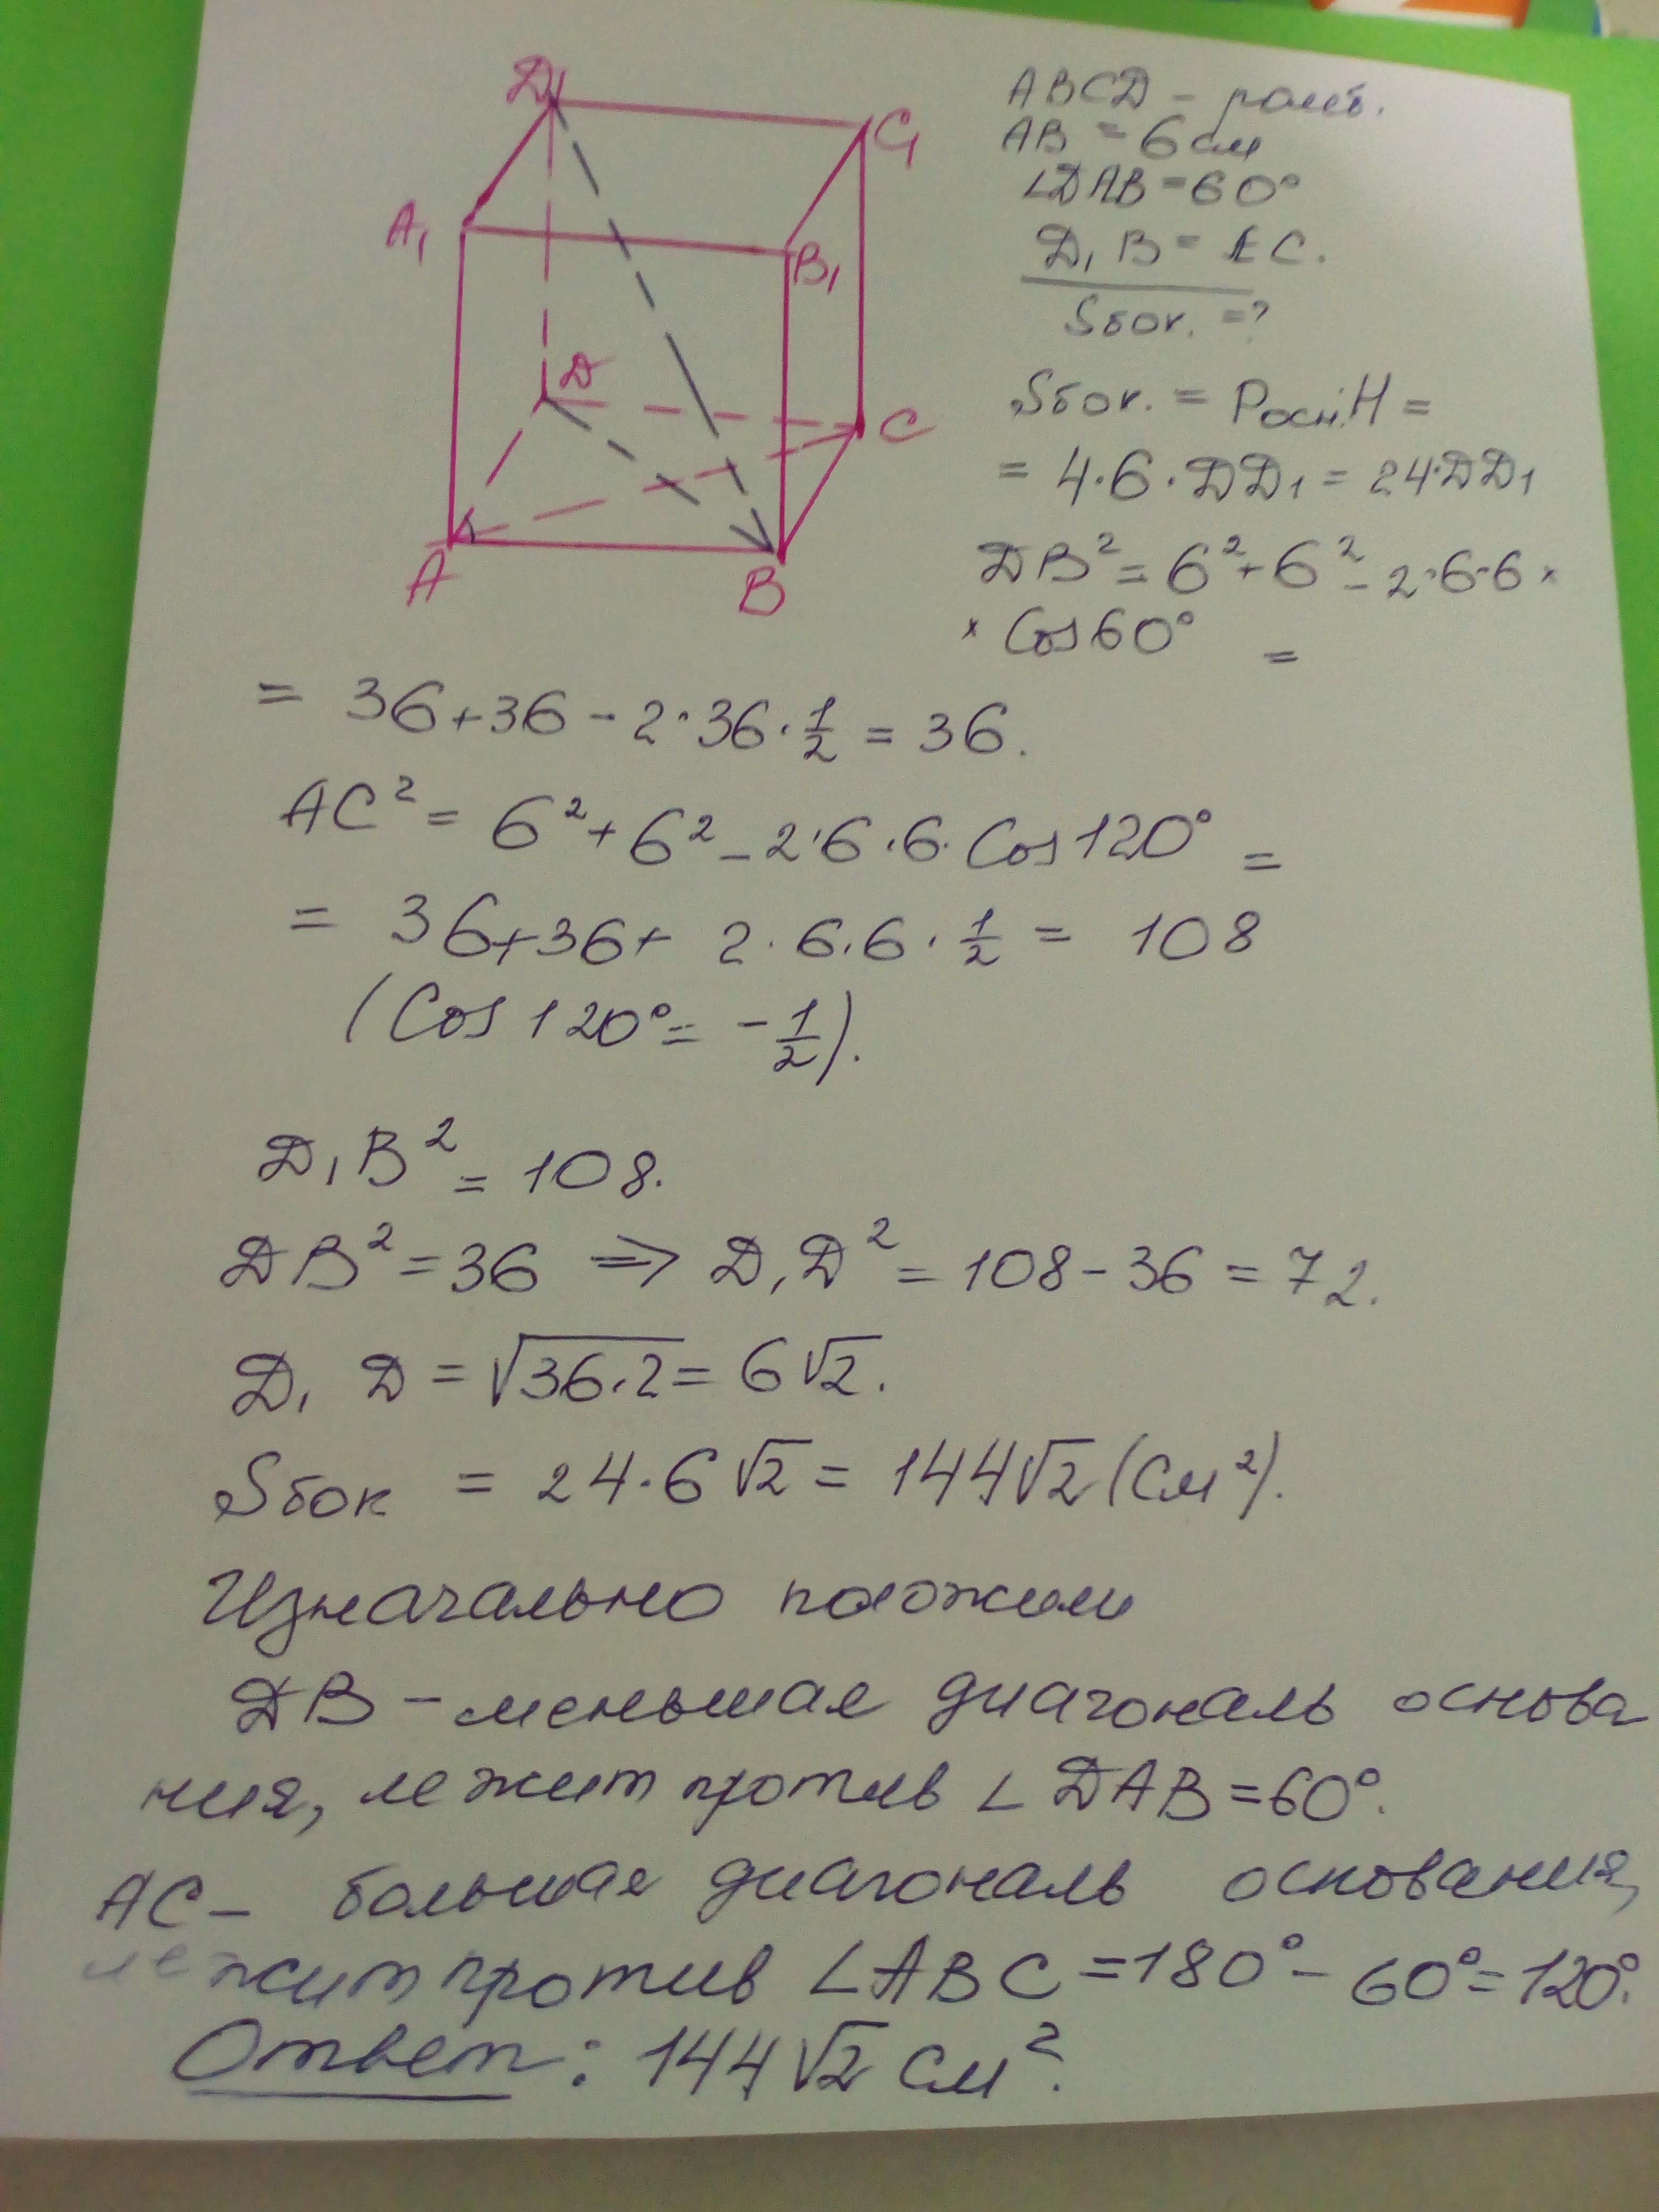 D₁
C₁
A₁
B₁
D
C
A
B
ABCD - ромб.
AB = 6 см
∠DAB = 60°
D₁B = AC.
Sбок. = ?
Sбок. = Pосн·H =
= 4·6·DD₁ = 24·DD₁
DB² = 6² + 6² - 2·6·6 ×
× Cos60° =
= 36 + 36 - 2·36·½ = 36.
AC² = 6² + 6² - 2·6·6·Cos120° =
= 36 + 36 + 2·6·6·½ = 108
(Cos 120° = -½).
D₁B² = 108.
DB² = 36 ⇒ D₁D² = 108 - 36 = 72.
D₁D = √36·2 = 6√2.
Sбок = 24·6√2 = 144√2 (см²).
Изначально положим
DB - меньшая диагональ основа
ния, лежит против ∠DAB = 60°.
AC - большая диагональ основания,
лежит против ∠ABC = 180° - 60° = 120°.
Ответ: 144√2 см².